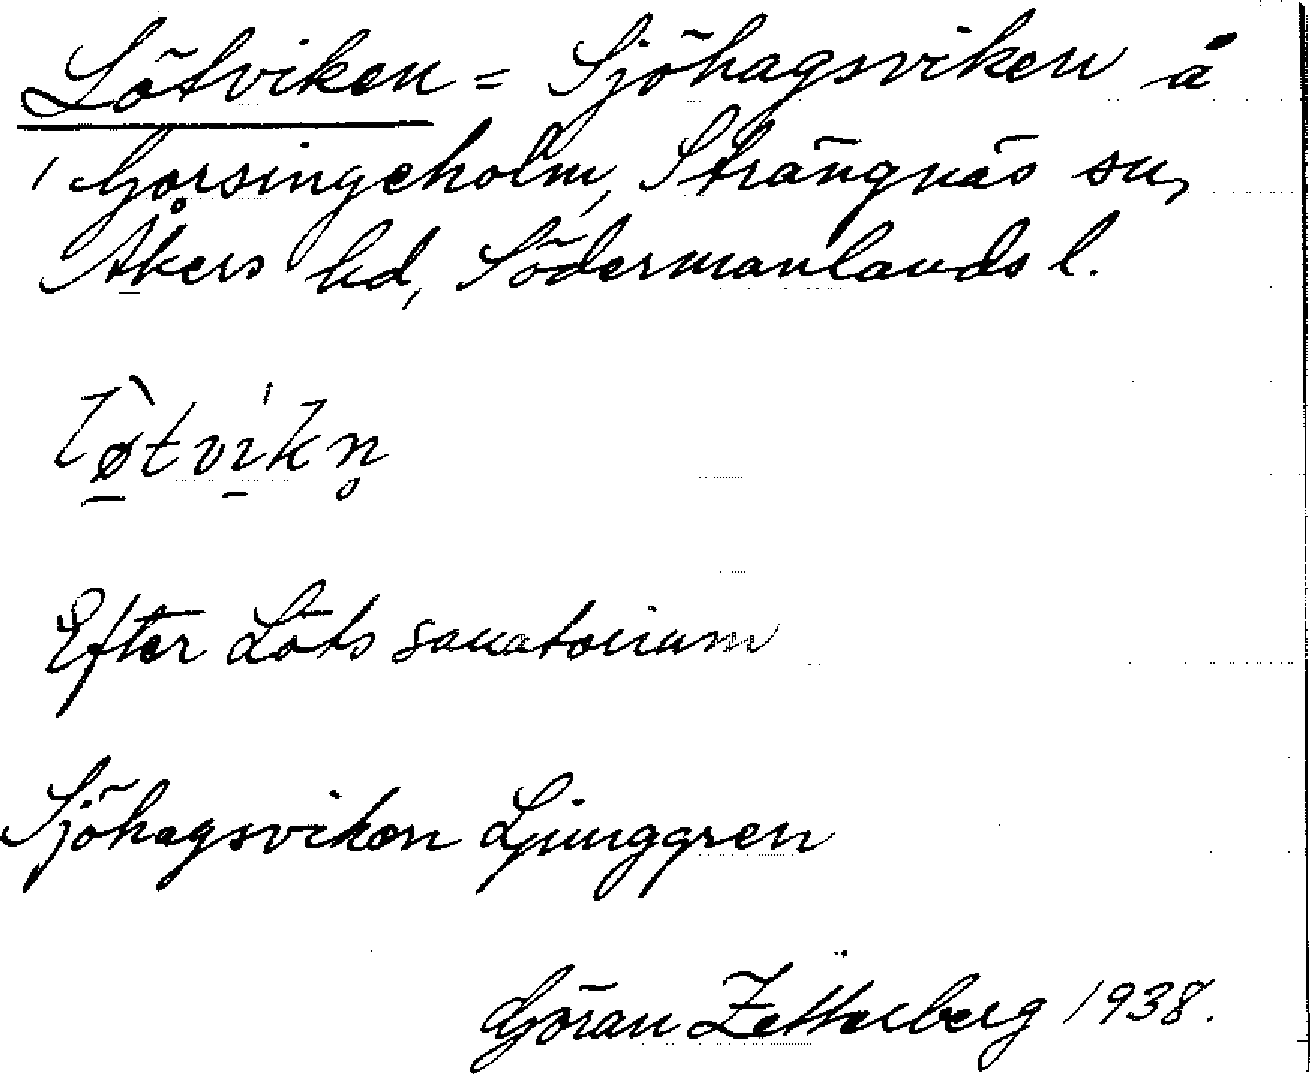 Lötviken = Sjöhagsviken å
Gorsingeholm, Strängnäs sn,
Åkers hd, Södermanlands l.
lø̠̀tvi̠kn̥
Efter Löts sanatorium
Sjöhagsviken Ljunggren
Göran Zetterberg 1938.